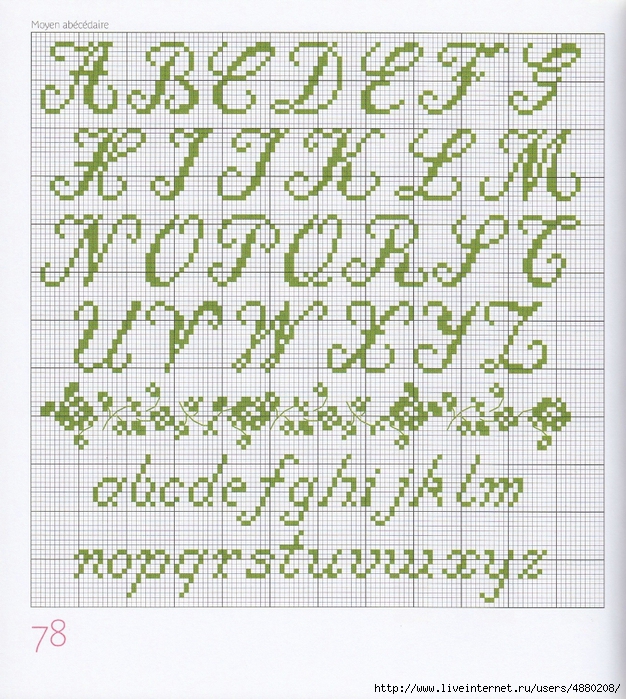 Moyen abécédaire
A B C D E F G
H I J K L M
N O P Q R S T
U V W X Y Z
abcdefghijklm
nopqrstuvwxyz
78
http://www.liveinternet.ru/users/4880208/